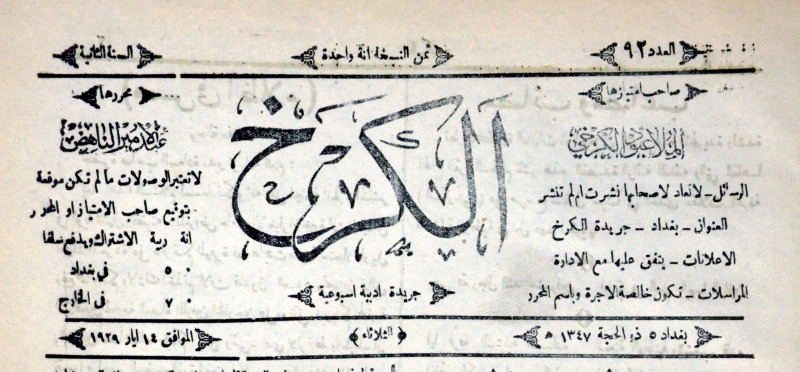 العدد ٩٢
ثمن النسخة انة واحدة
السنة الثانية
صاحب امتيازها
الملا عبود الكرخي
الرسائل – لا تعاد لاصحابها نشرت ام لم تنشر
العنوان – بغداد – جريدة الكرخ
الاعلانات – يتفق عليها مع الادارة
المراسلات – تكون خالصة الاجرة وباسم المحرر
الكرخ
جريدة ادبية اسبوعية
محررها
عبد الامير الناهض
لا تعتبر الوصولات ما لم تكن موقعة
بتوقيع صاحب الامتياز او المحرر
انة ربية الاشتراك ويدفع سلفا
٠ ٥ في بغداد
٠ ٧ في الخارج
بغداد ٥ ذو الحجة ١٣٤٧ ه
الثلاثاء
الموافق ١٤ ايار ١٩٢٩